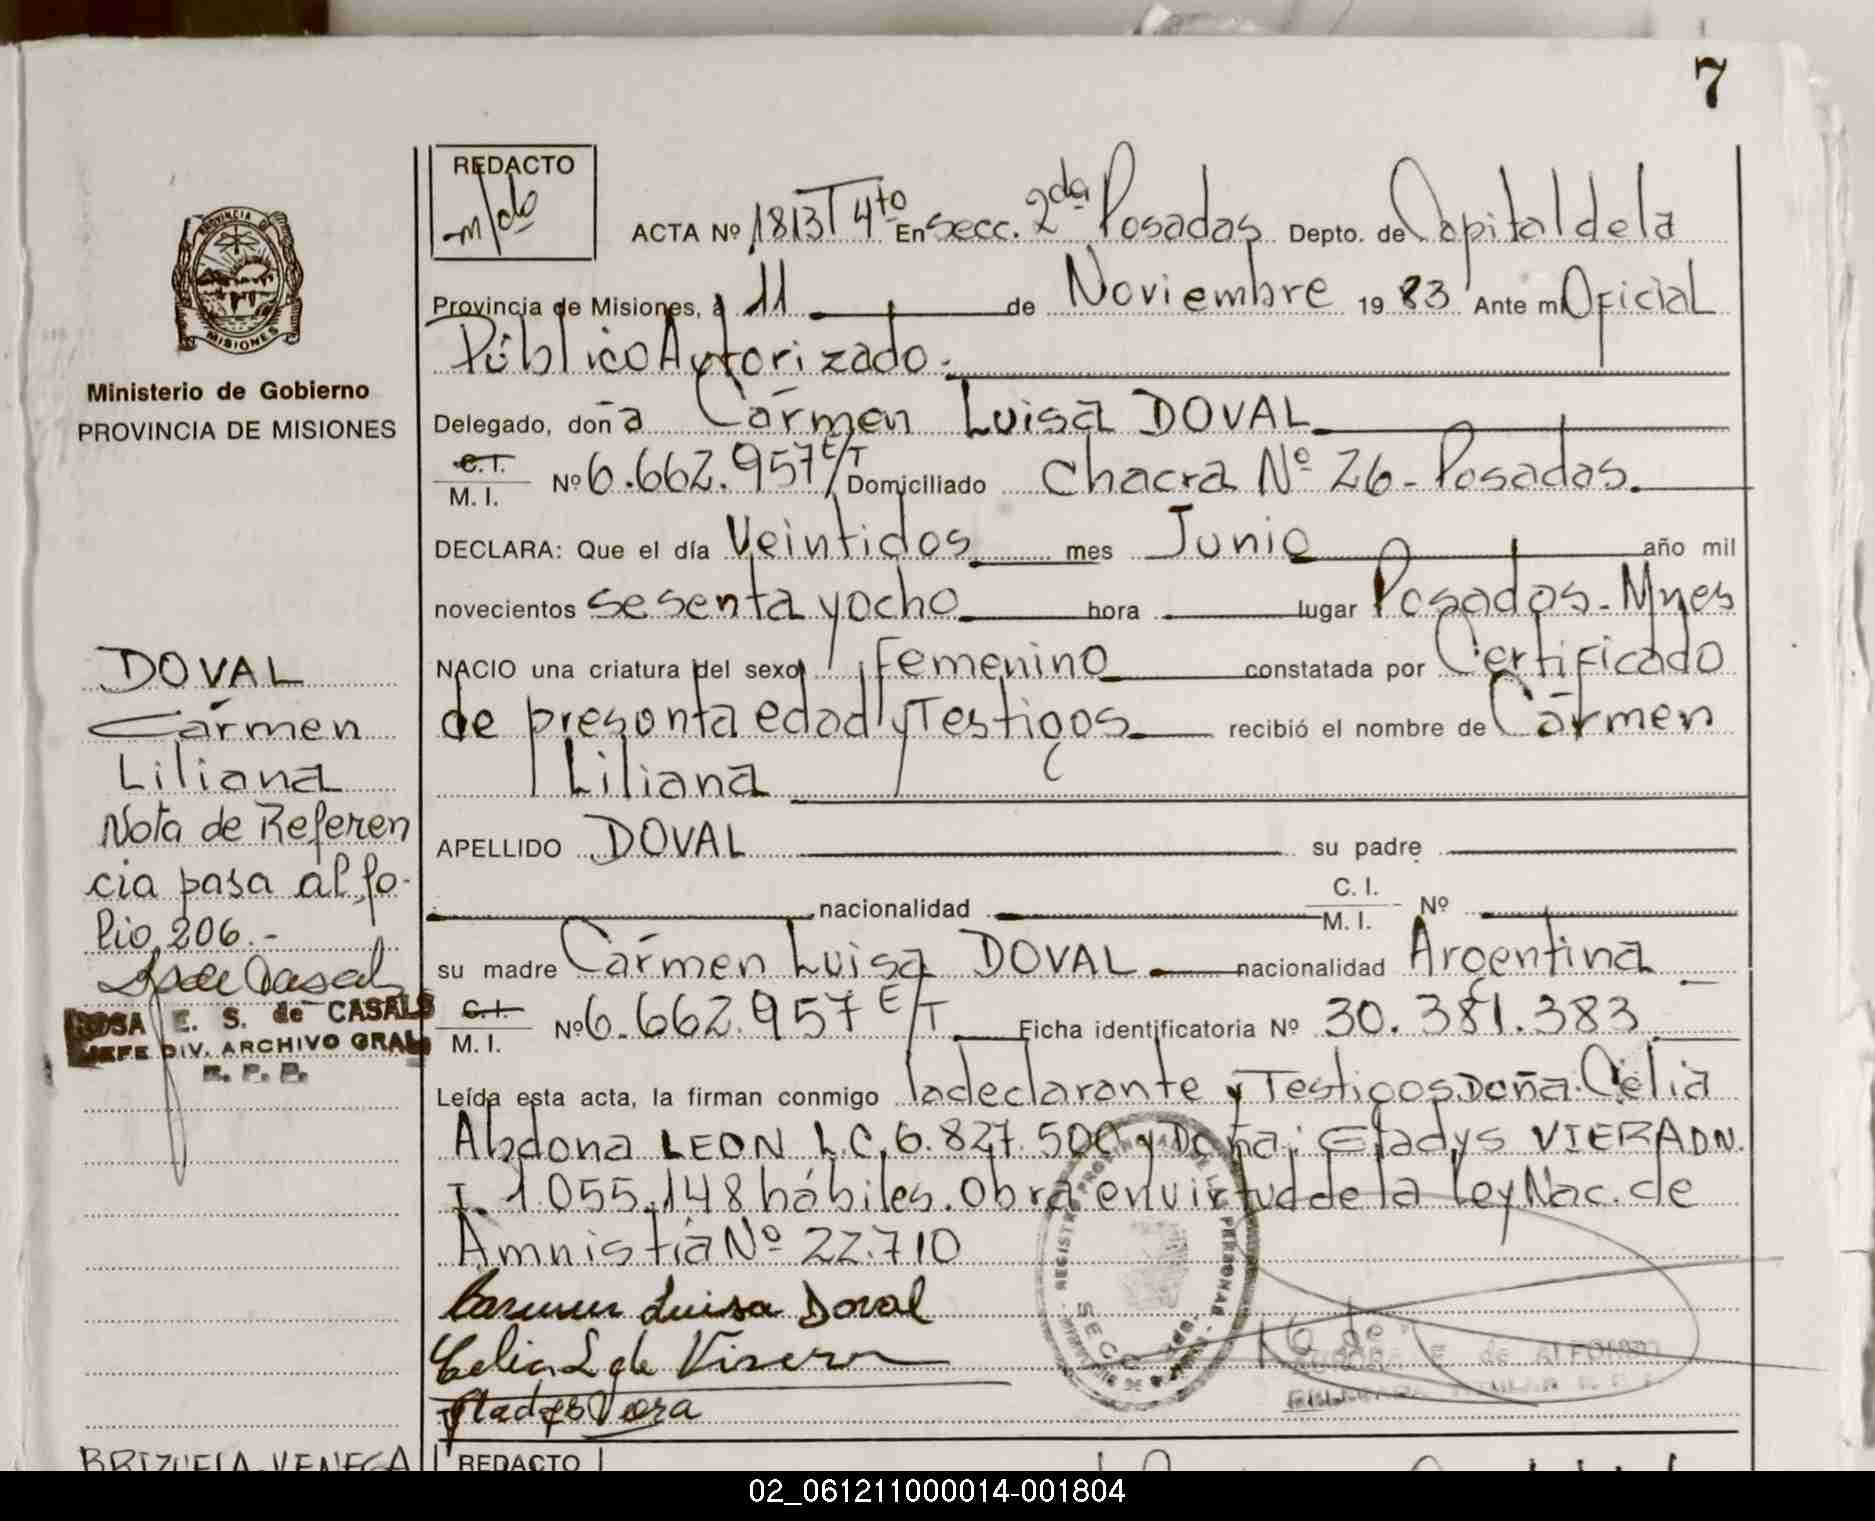 7
REDACTO
m/do
ACTA Nº 1813 T 4to En secc. 2da Posadas Depto. de Capital de la
Provincia de Misiones, a 11 de Noviembre 1983 Ante mi Oficial
Público Autorizado.
Delegado, doña Cármen Luisa DOVAL
C.I. M. I. Nº 6.662.957 E/T Domiciliado Chacra Nº 26 - Posadas.
DECLARA: Que el día Veintidos mes Junio año mil
novecientos sesenta y ocho hora lugar Posadas - Mnes
NACIO una criatura del sexo femenino constatada por Certificado
de presonta edad y Testigos recibió el nombre de Cármen
Liliana
APELLIDO DOVAL su padre
nacionalidad C. I. M. I. Nº
su madre Cármen Luisa DOVAL nacionalidad Argentina
C.I. M. I. Nº 6.662.957 E/T Ficha identificatoria Nº 30.381.383
Leída esta acta, la firman conmigo la declarante y Testigos Doña: Célia
Abdona LEON L.C. 6.827.500 y Doña: Gladys VIERA D.N.
I. 1.055.148 hábiles. Obra en virtud de la Ley Nac. de
Amnistía Nº 22.710
Carmen Luisa Doval
Celia L de
Gladys Viera
Ministerio de Gobierno
PROVINCIA DE MISIONES
PROVINCIA DE
MISIONES
DOVAL
Cármen
Liliana
Nota de Referen
cia pasa al fo-
lio 206.-
ROSA E. S. de CASALS
JEFE DIV. ARCHIVO GRAL
R. P. P.
de ALFONSO
BRIZUELA VENEGA
REDACTO
02_061211000014-001804